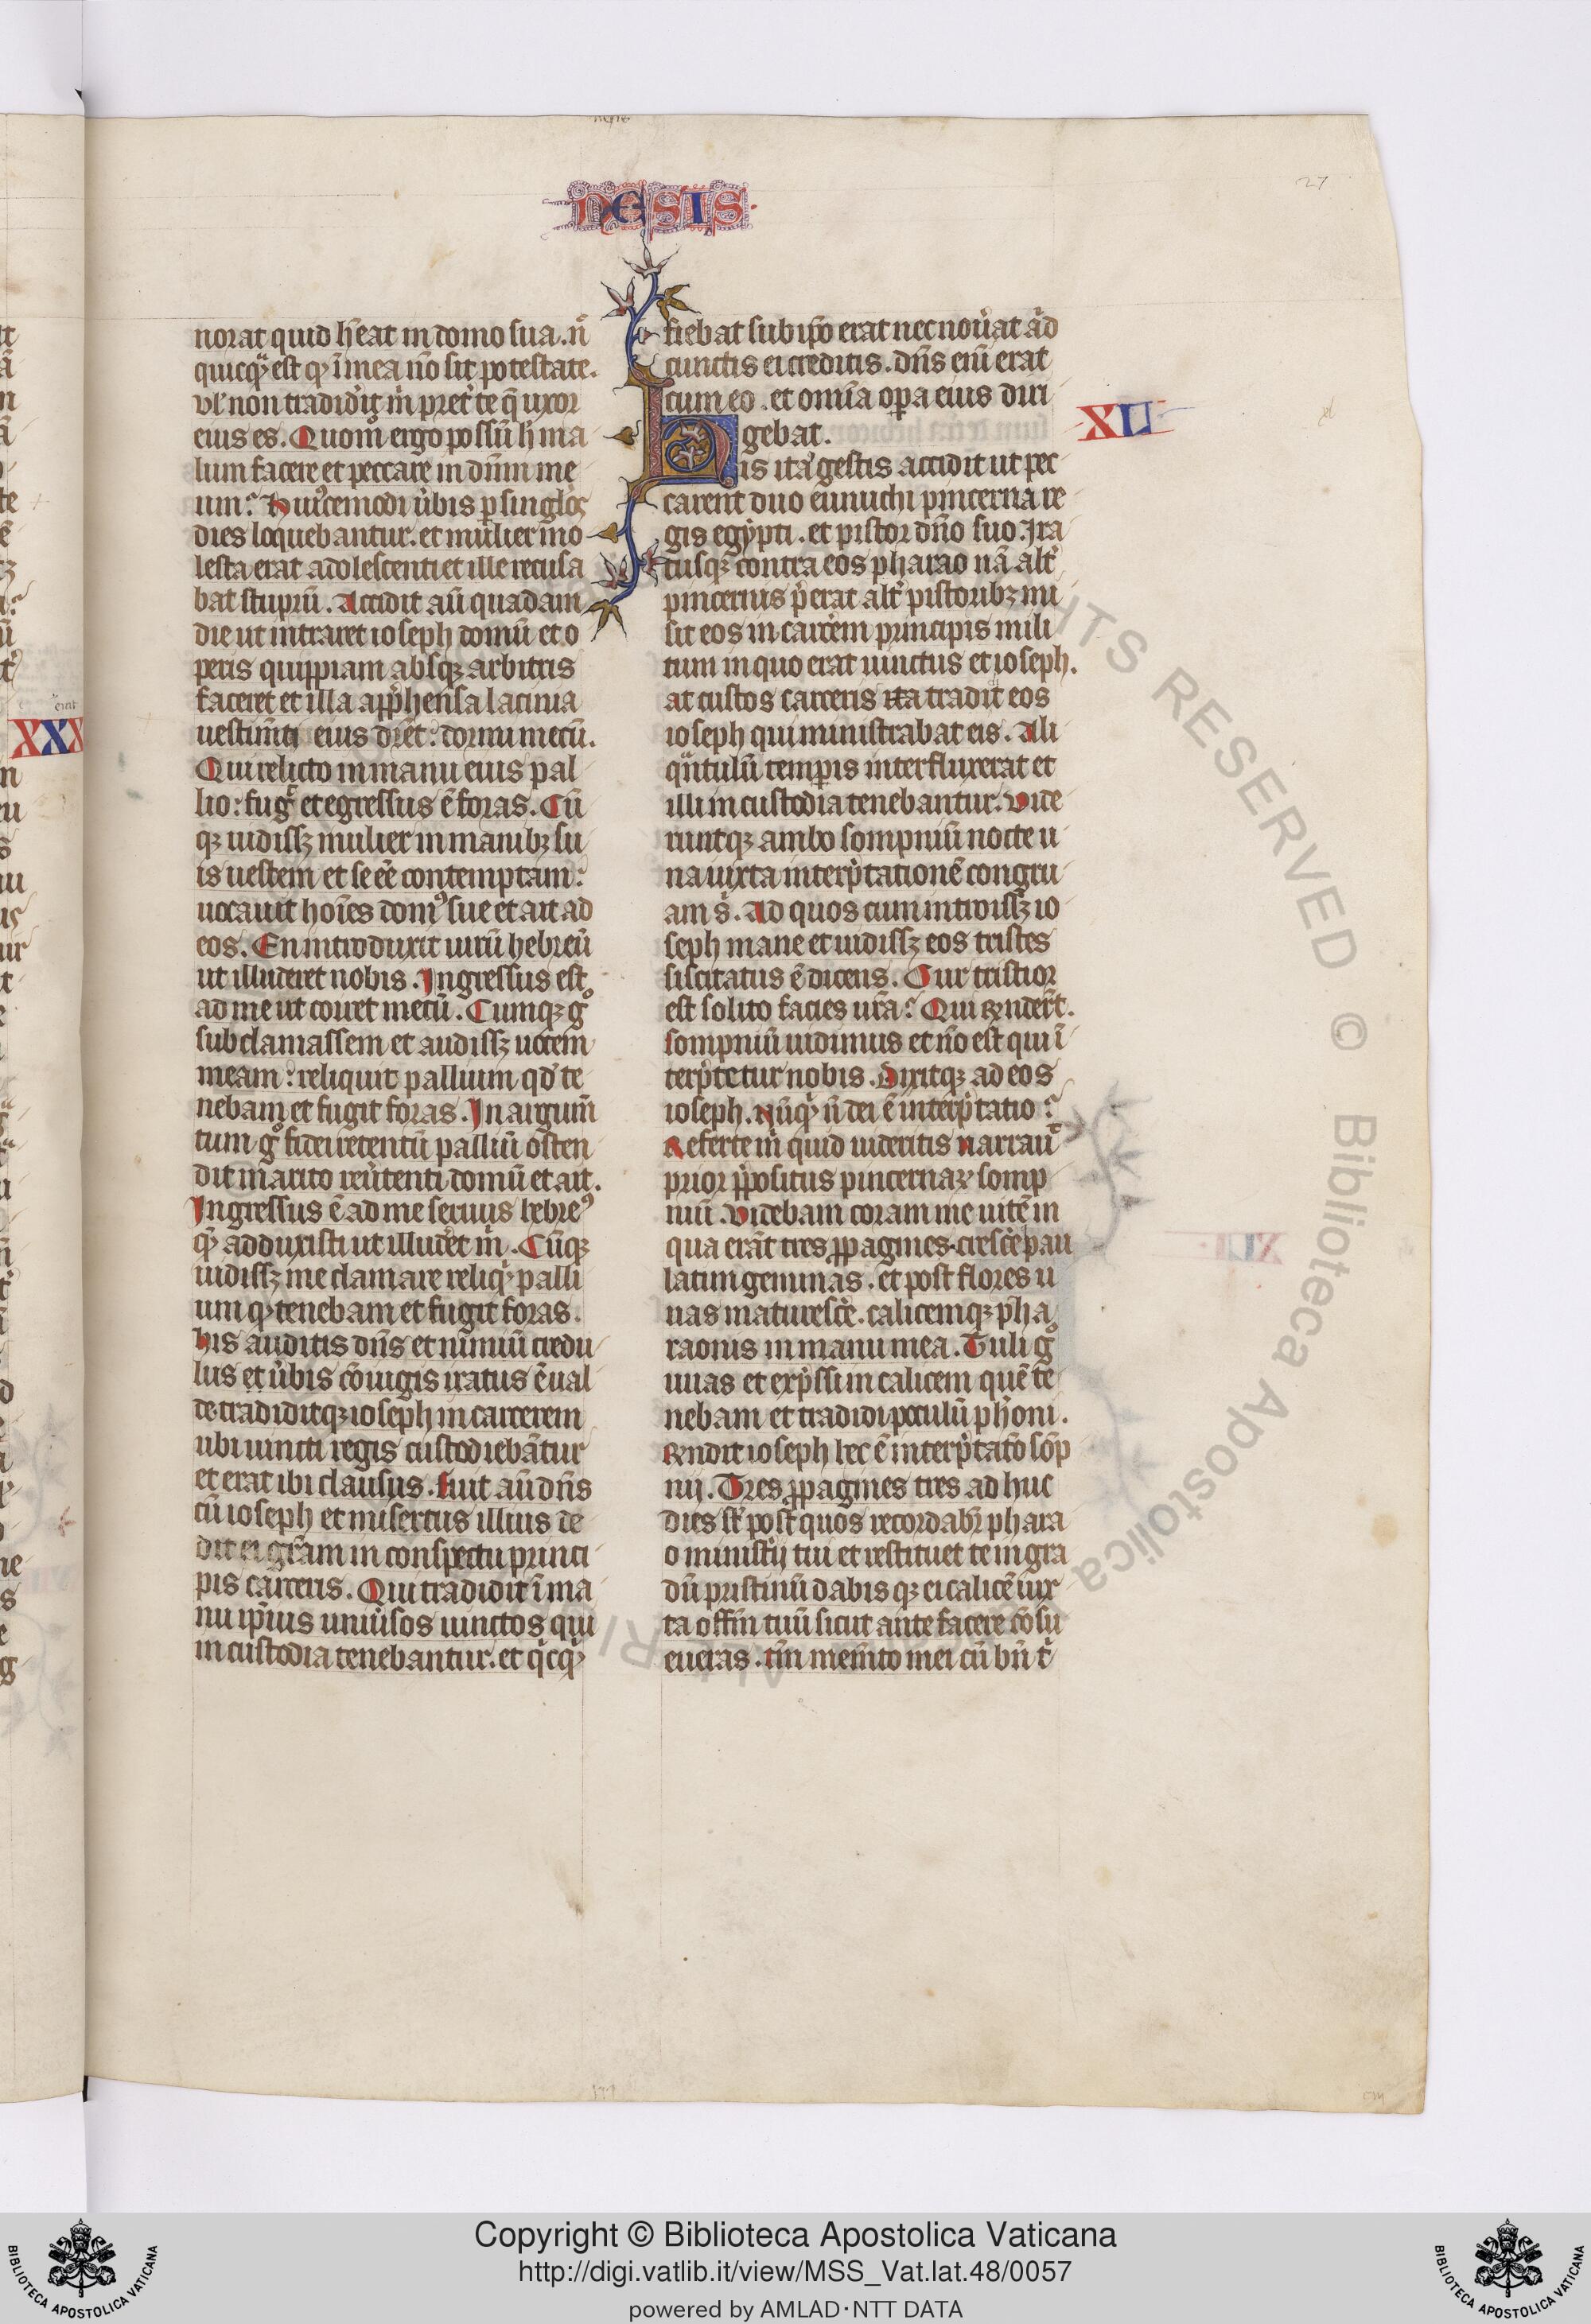 NESIS
27
norat quid h̄eat in domo sua. n̄
quicq̄ est q̄ ī mea nō sit potestate.
vl' non tradid'it m̄ pret' te q̄ uxor
eius es. Quom̊ ergo possū h̄ ma
lum facere et peccare in dn̄m me
um? Huiꝰcemodi ūbis ꝑ singl'os
dies loquebantur. et mulier mo
lesta erat adolescenti et ille recusa
bat stuprū. Accidit aū quadam
die ut intraret ioseph domū et o
peris quippiam absqꝫ arbitris
faceret et illa app̄hensa lacinia
uestim̄ti eius dr̄et: dormi mecū.
Qui relicto in manu eius pal
lio: fug̊ et egressus ē foras. Cū
qꝫ uidissꝫ mulier in manibꝫ su
is uestem et se eē contemptam:
uocauit hoīes domꝰ sue et ait ad
eos. En introduxit uirū hebreū
ut illuderet nobis. Ingressus est
ad me ut coiret mecū. Cumqꝫ g̊
subclamassem et audissꝫ uocem
meam: reliquit pallium qd' te
nebam et fugit foras. In argum̄
tum g̊ fidei retentū palliū osten
dit marito reūtenti domū et ait.
Ingressus ē ad me seruus hebreꝰ
q̄ adduxisti ut illud'et m̄. Cūqꝫ
uidissꝫ me clamare reliq̄ palli
um q̄ tenebam et fugit foras.
his auditis dn̄s et nimiū credu
lus et ūbis cōiugis iratus ē ual
de. tradiditqꝫ ioseph in carcerem
ubi uincti regis custodiebātur
et erat ibi clausus. fuit aū dn̄s
cū ioseph et misertus illius de
dit ei gr̄am in conspectu princi
pis carceris. Qui tradidit ī ma
nu ip̄ius uniūsos uinctos qui
in custodia tenebantur. et q̄cq̄
fiebat sub ip̄o erat nec nou̾at a̾d
cunctis ei creditis. dn̄s enī erat
cum eo. et omīa oꝑa eius diri
gebat.
XLI
His itaꝗ gestis accidit ut pec
carent duo eunuchi pincerna re
gis egypti. et pistor dn̄o suo. Ira
tusqꝫ contra eos pharao nā alt'
pincernis p̄erat alt' pistoribꝫ mi
sit eos in carcerem principis mili
tum in quo erat uinctus et ioseph.
at custos carceris tradit eos
ioseph qui ministrabat eis. Ali
qn̄tulū temꝑis interfluxerat et
illi in custodia tenebantur. Vide
runtqꝫ ambo sompniū nocte u
na iuxta interp̄tationē congru
am s̄. Ad quos cum introissꝫ io
seph mane et uidissꝫ eos tristes
siscitatus ē dicens. Cur tristior
est solito facies ur̄a? Qui rn̄der̄t.
sompniū uidimus et nō est qui ī
terp̄tetur nobis. Dixitqꝫ ad eos
ioseph. Nūq̄ n̄ dei ē interp̄tatio?
Referte m̄ quid uideritis narrau̾
prior p̄positus pincernaꝝ somp
niū. Videbam coram me uitē in
qua erāt tres ꝓpagines. cresc̄e pau
latim gemmas. et post flores u
uas maturesc̄e. calicemqꝫ pha
raonis in manu mea. Tuli g̊
uuas et exp̄ssi in calicem quē te
nebam et tradidi poculū ph̄oni.
Rn̄dit ioseph hec ē interp̄tatō sōp
nij. Tres ꝓpagines tres adhuc
dies st̄ post quos recordabr̄ phara
o ministij tui et restituet te in gra
dū pristinū dabisqꝫ ei calicē iux
ta offm̄ tuū sicut ante facere cōsu
eueras. tm̄ mem̄to mei cū bn̄ t'
ALL RIGHTS RESERVED © Biblioteca Apostolica
Copyright © Biblioteca Apostolica Vaticana
http://digi.vatlib.it/view/MSS_Vat.lat.48/0057
powered by AMLAD·NTT DATA
BIBLIOTECA APOSTOLICA VATICANA
BIBLIOTECA APOSTOLICA VATICANA